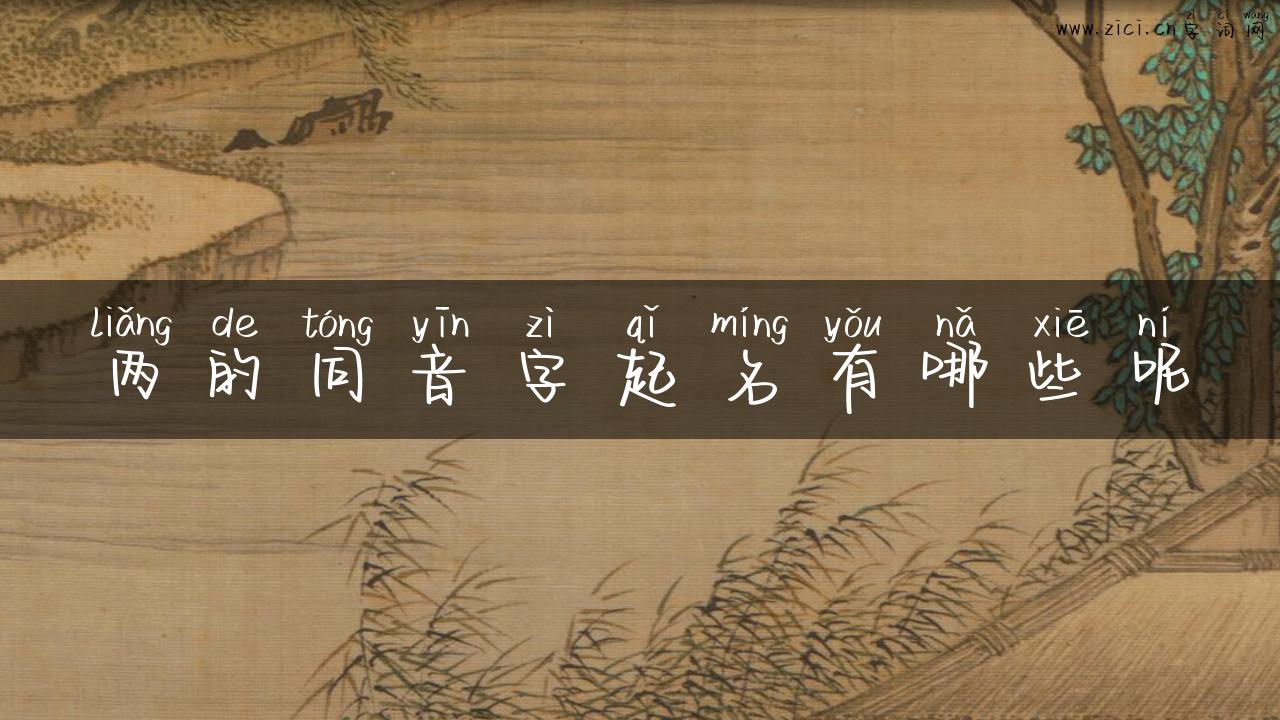 zì cí wǎng
www.zici.cn字词网
liǎng de tóng yīn zì qǐ míng yǒu nǎ xiē ní
两的同音字起名有哪些呢